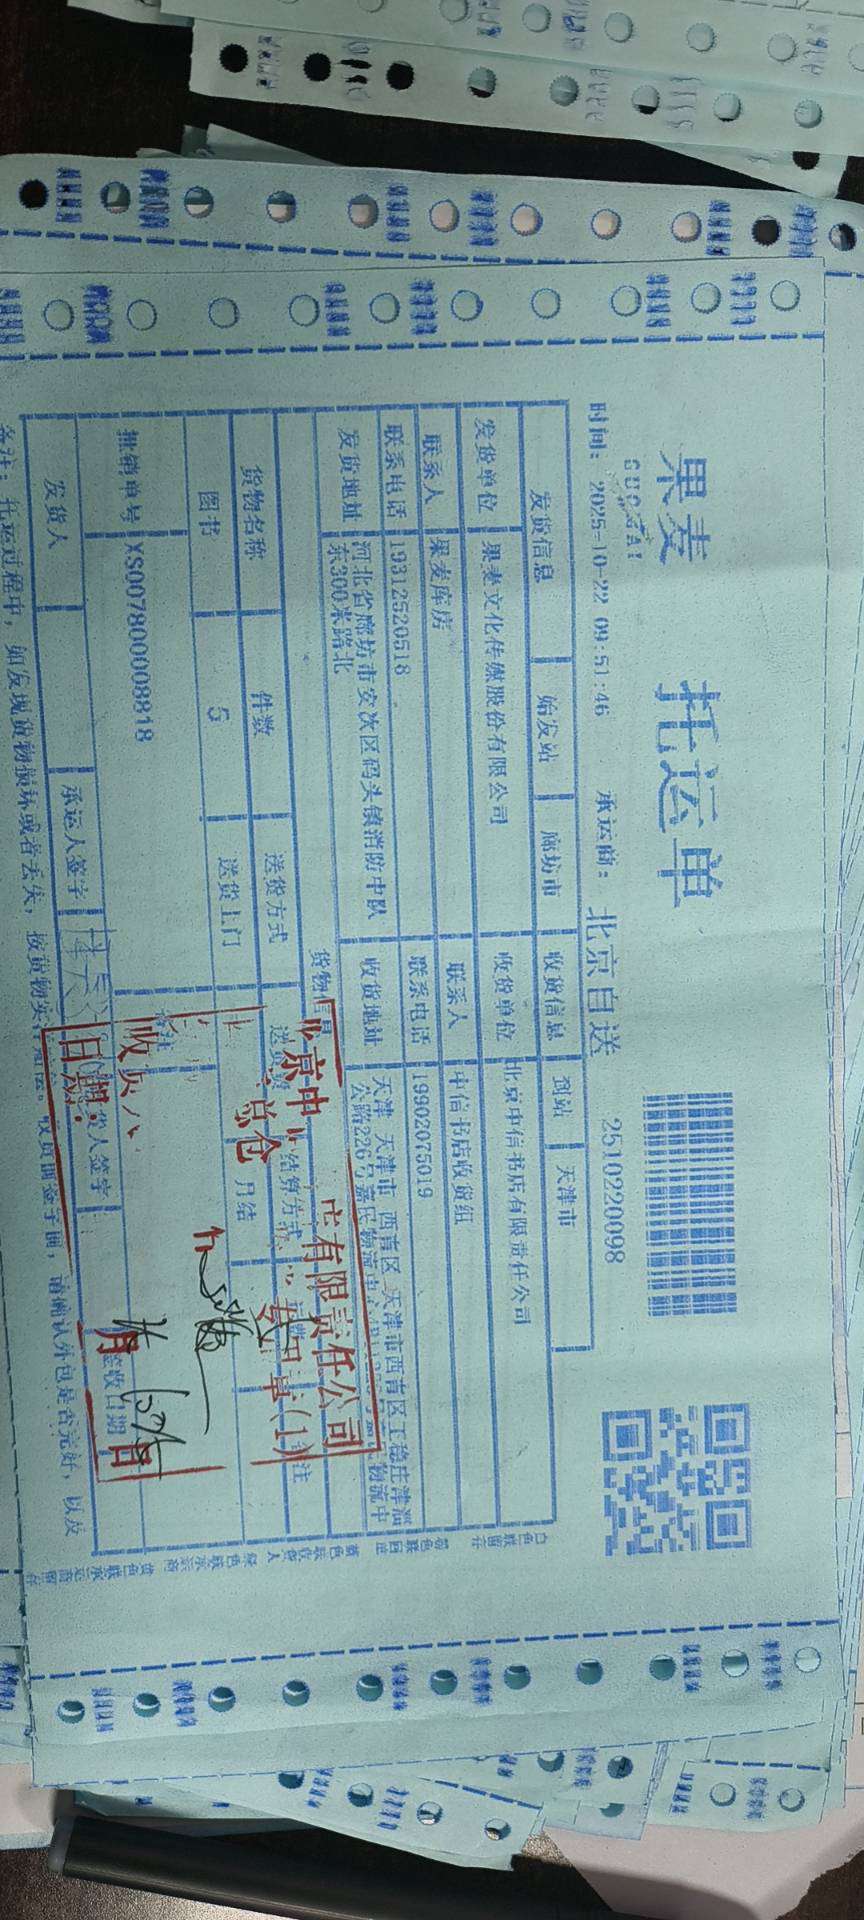 果麦 托运单
GUOMAI
时间: 2025-10-22 09:51:46 承运商: 北京自送 2510220098
发货信息 始发站 廊坊市 收货信息 到站 天津市
发货单位 果麦文化传媒股份有限公司 收货单位 北京中信书店有限责任公司
联系人 果麦库房 联系人 中信书店收货组
联系电话 19312520518 联系电话 19902075019
发货地址 河北省廊坊市安次区码头镇消防中队 收货地址 天津 天津市 西青区 天津市西青区王稳庄津淄
东300米路北 公路226号嘉民物流中心 物流中
货物信息
货物名称 件数 送货方式 送货费 结算方式 备注
图书 5 送货上门 月结
批销单号 XS007800008818 备注
发货人 承运人签字 收货人签字 签收日期
备注: 托运过程中, 如发现货物损坏或者丢失, 按货物实 收货而签字前, 请确认外包是否完好, 以及
白色联留存 粉色联回单 蓝色联收货人 绿色联承运商 黄色联承运商留存
京中 店有限责任公司
总仓 (1)
收货人
日期: 月 日